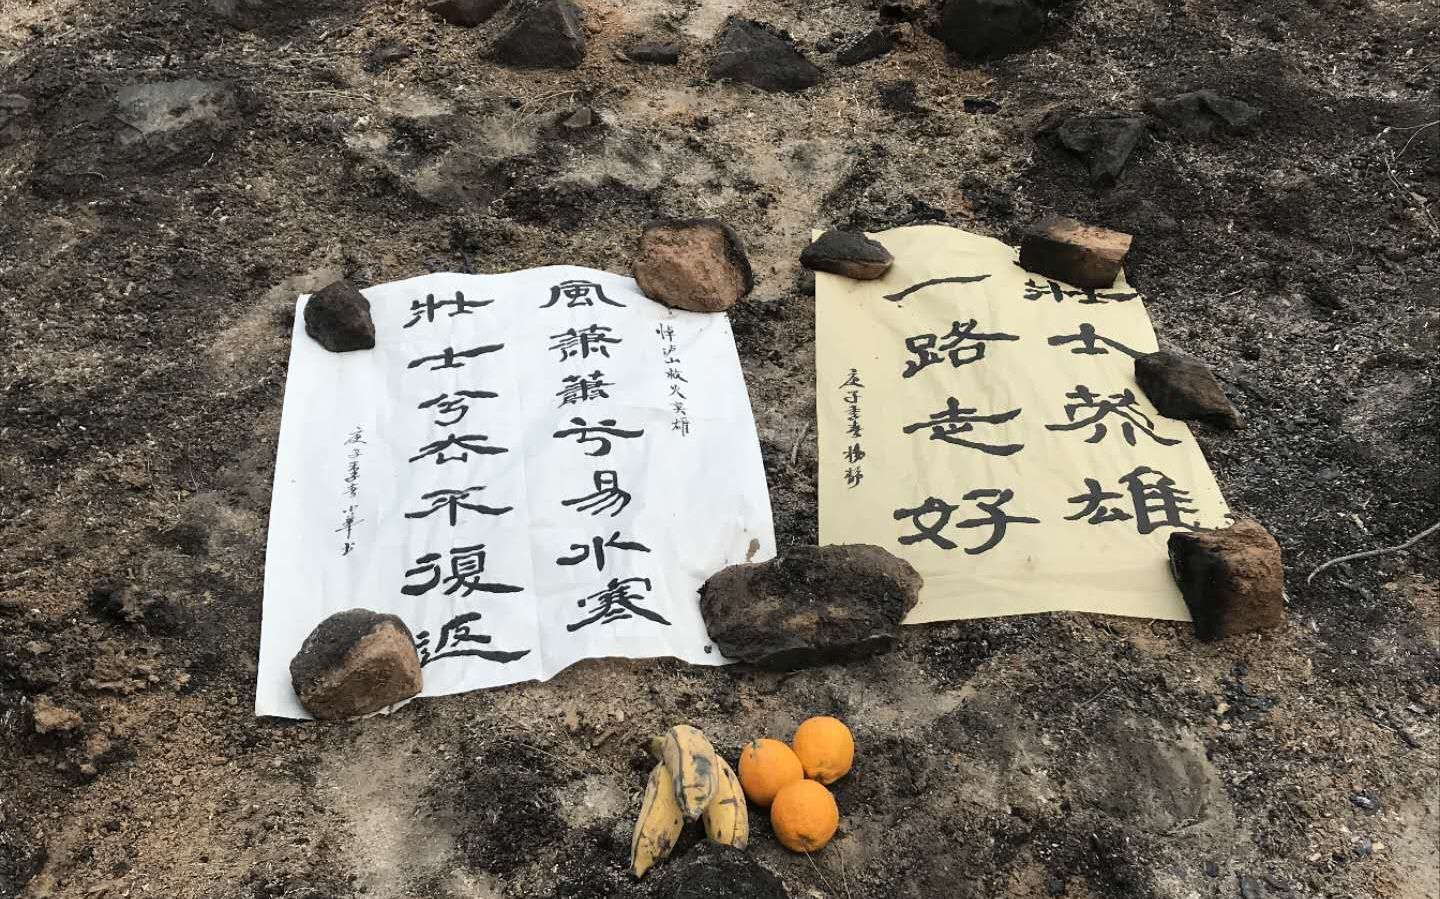 悼泸山救火英雄
風蕭蕭兮易水寒
壯士兮去不復返
庚子季春小華书
壯士英雄
一路走好
庚子季春楊静